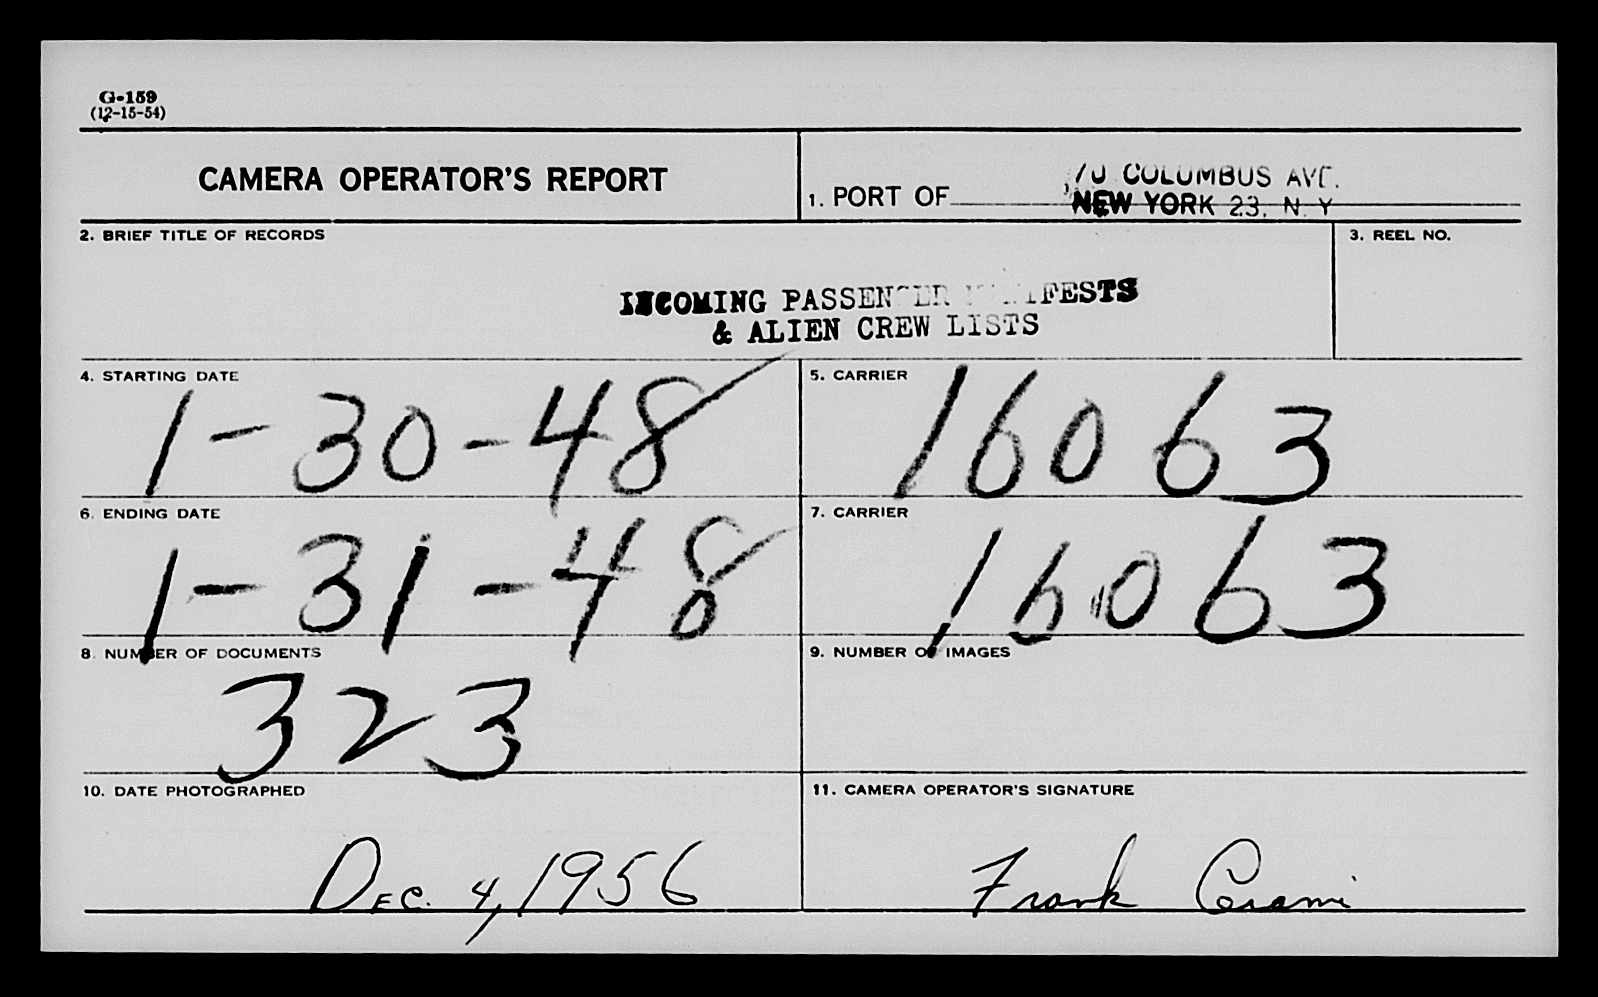 G-159
(12-15-54)
CAMERA OPERATOR'S REPORT
1. PORT OF
70 COLUMBUS AVE.
NEW YORK 23, N. Y
2. BRIEF TITLE OF RECORDS
3. REEL NO.
INCOMING PASSENGER MANIFESTS
& ALIEN CREW LISTS
4. STARTING DATE
1-30-48
5. CARRIER
16063
6. ENDING DATE
1-31-48
7. CARRIER
16063
8. NUMBER OF DOCUMENTS
323
9. NUMBER OF IMAGES
10. DATE PHOTOGRAPHED
Dec. 4, 1956
11. CAMERA OPERATOR'S SIGNATURE
Frank